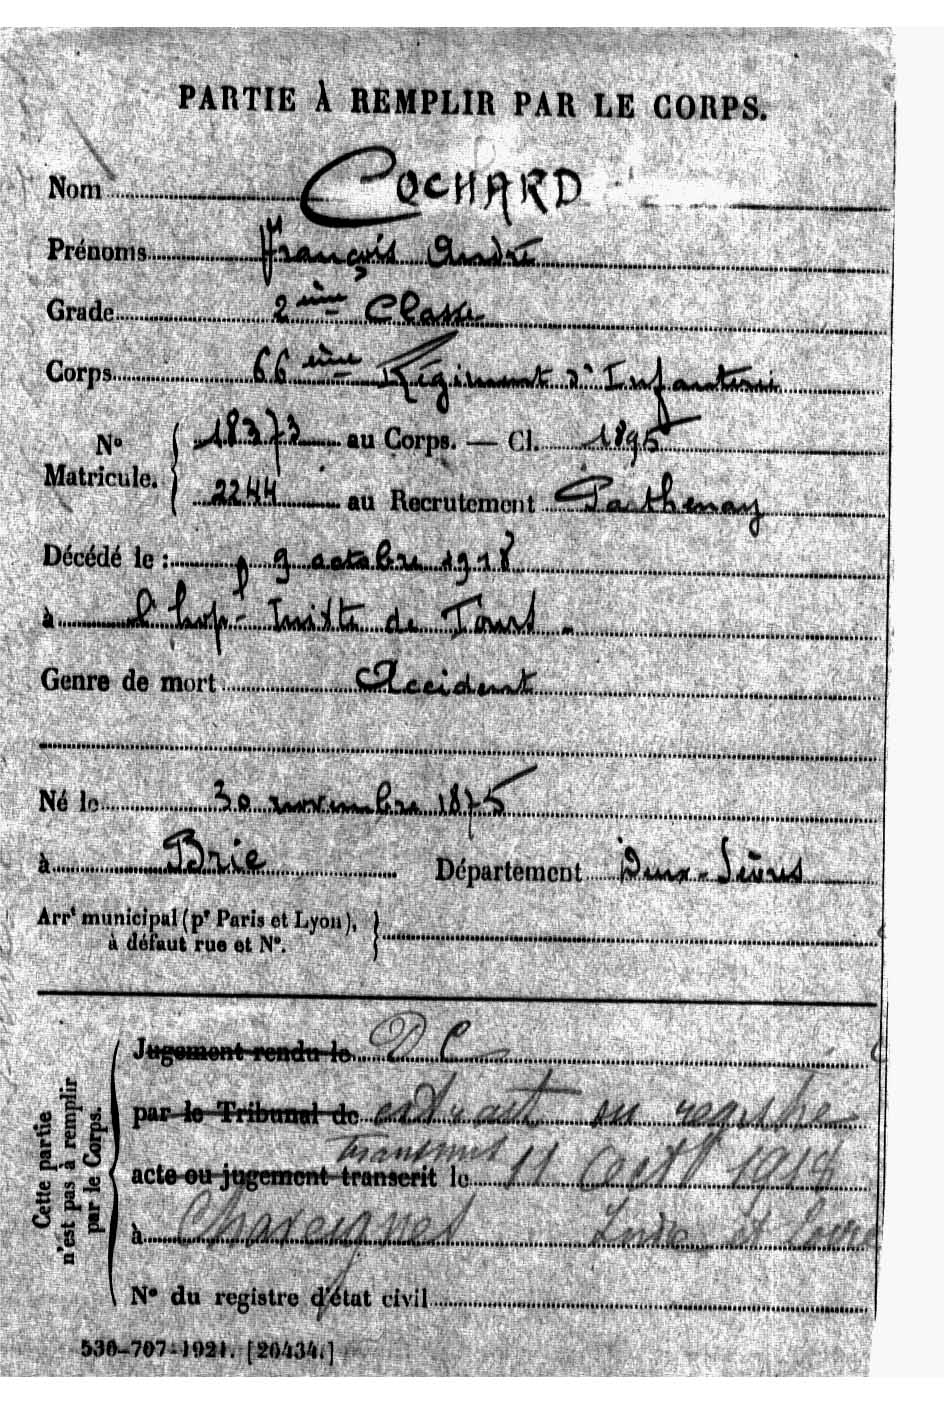 PARTIE À REMPLIR PAR LE CORPS.
Nom COCHARD
Prénoms François André
Grade 2ème Classe
Corps 66ème Régiment d'Infanterie
No Matricule. 18373 au Corps. — Cl. 1895
2244 au Recrutement Parthenay
Décédé le : 9 octobre 1918
à l'hopl mixte de Tours
Genre de mort Accident
Né le 30 novembre 1875
à Brie Département Deux-Sèvres
Arrt municipal (pr Paris et Lyon), à défaut rue et No.
Cette partie n'est pas à remplir par le Corps.
Jugement rendu le D C
par le Tribunal de extrait du registre
transmis
acte ou jugement transcrit le 11 1918
à Indre et Loire
No du registre d'état civil
530-707-1921. [20434.]